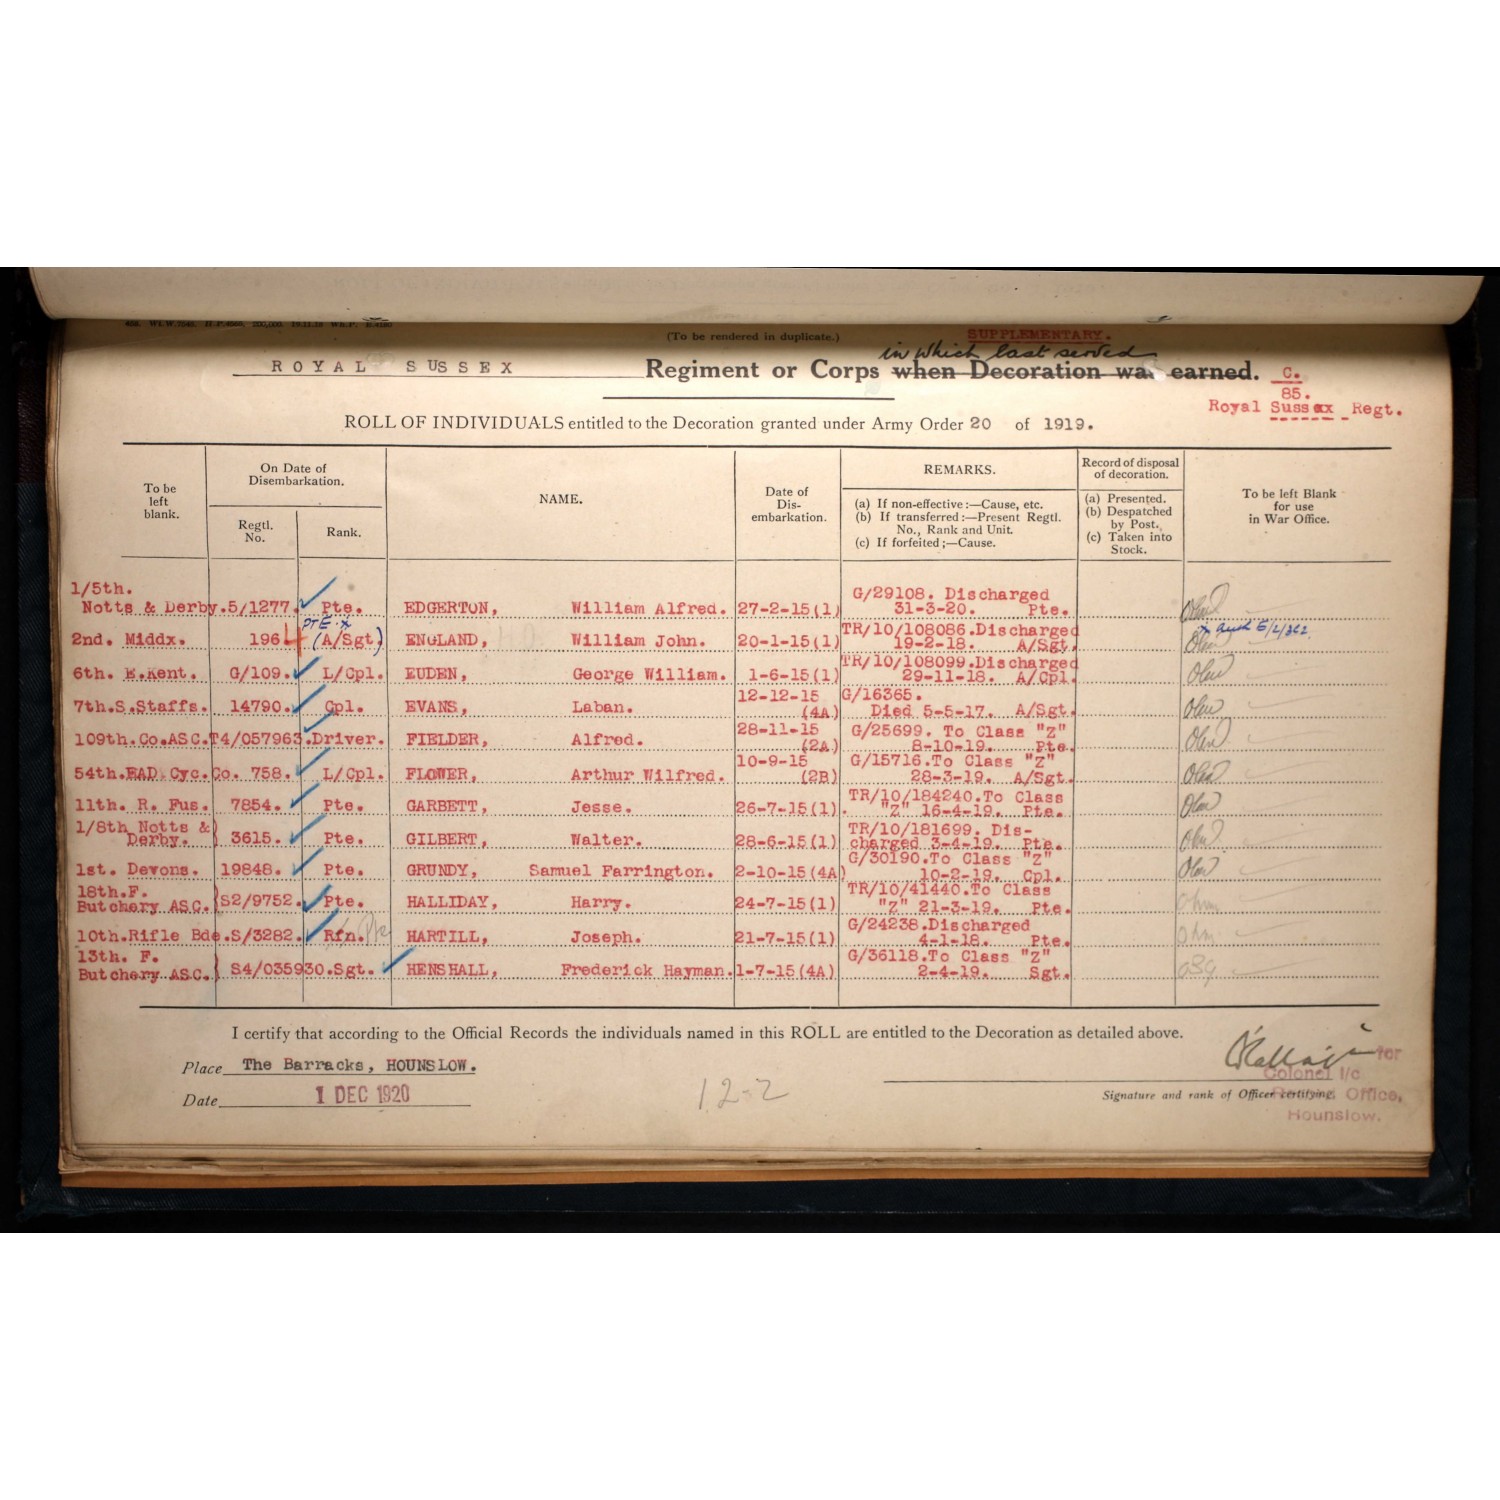 (To be rendered in duplicate.)
SUPPLEMENTARY.
in which last served
ROYAL SUSSEX Regiment or Corps when Decoration was earned.
C.
85.
Royal Sussex Regt.
ROLL OF INDIVIDUALS entitled to the Decoration granted under Army Order 20 of 1919.
To be left blank.
On Date of Disembarkation.
Regtl. No.
Rank.
NAME.
Date of Dis-embarkation.
REMARKS.
(a) If non-effective:—Cause, etc.
(b) If transferred:—Present Regtl. No., Rank and Unit.
(c) If forfeited;—Cause.
Record of disposal of decoration.
(a) Presented.
(b) Despatched by Post.
(c) Taken into Stock.
To be left Blank for use in War Office.
1/5th. Notts & Derby. 5/1277. Pte. EDGERTON, William Alfred. 27-2-15(1) G/29108. Discharged 31-3-20. Pte.
PTE. x
2nd. Middx. 1964 (A/Sgt) ENGLAND, William John. 20-1-15(1) TR/10/108086.Discharged 19-2-18. A/Sgt.
6th. E.Kent. G/109. L/Cpl. EUDEN, George William. 1-6-15(1) TR/10/108099.Discharged 29-11-18. A/Cpl.
7th.S.Staffs. 14790. Cpl. EVANS, Laban. 12-12-15 (4A) G/16365. Died 5-5-17. A/Sgt.
109th.Co.ASC. T4/057963.Driver. FIELDER, Alfred. 28-11-15 (2A) G/25699. To Class "Z" 8-10-19. Pte.
54th.EAD Cyc.Co. 758. L/Cpl. FLOWER, Arthur Wilfred. 10-9-15 (2B) G/15716.To Class "Z" 28-3-19. A/Sgt.
11th. R. Fus. 7854. Pte. GARBETT, Jesse. 26-7-15(1). TR/10/184240.To Class "Z" 16-4-19. Pte.
1/8th Notts & Derby. 3615. Pte. GILBERT, Walter. 28-6-15(1) TR/10/181699. Dis-charged 3-4-19. Pte.
1st. Devons. 19848. Pte. GRUNDY, Samuel Farrington. 2-10-15(4A) G/30190.To Class "Z" 10-2-19. Cpl.
18th.F. Butchery ASC. S2/9752. Pte. HALLIDAY, Harry. 24-7-15(1) TR/10/41440.To Class "Z" 21-3-19. Pte.
10th.Rifle Bde.S/3282. Rfn. Pte HARTILL, Joseph. 21-7-15(1) G/24238.Discharged 4-1-18. Pte.
13th. F. Butchery ASC. S4/035930.Sgt. HENSHALL, Frederick Hayman. 1-7-15(4A) G/36118.To Class "Z" 2-4-19. Sgt.
I certify that according to the Official Records the individuals named in this ROLL are entitled to the Decoration as detailed above.
Place The Barracks, HOUNSLOW.
Date 1 DEC 1920
12-2
for
Colonel i/c
Signature and rank of Officer certifying.
Office,
Hounslow.